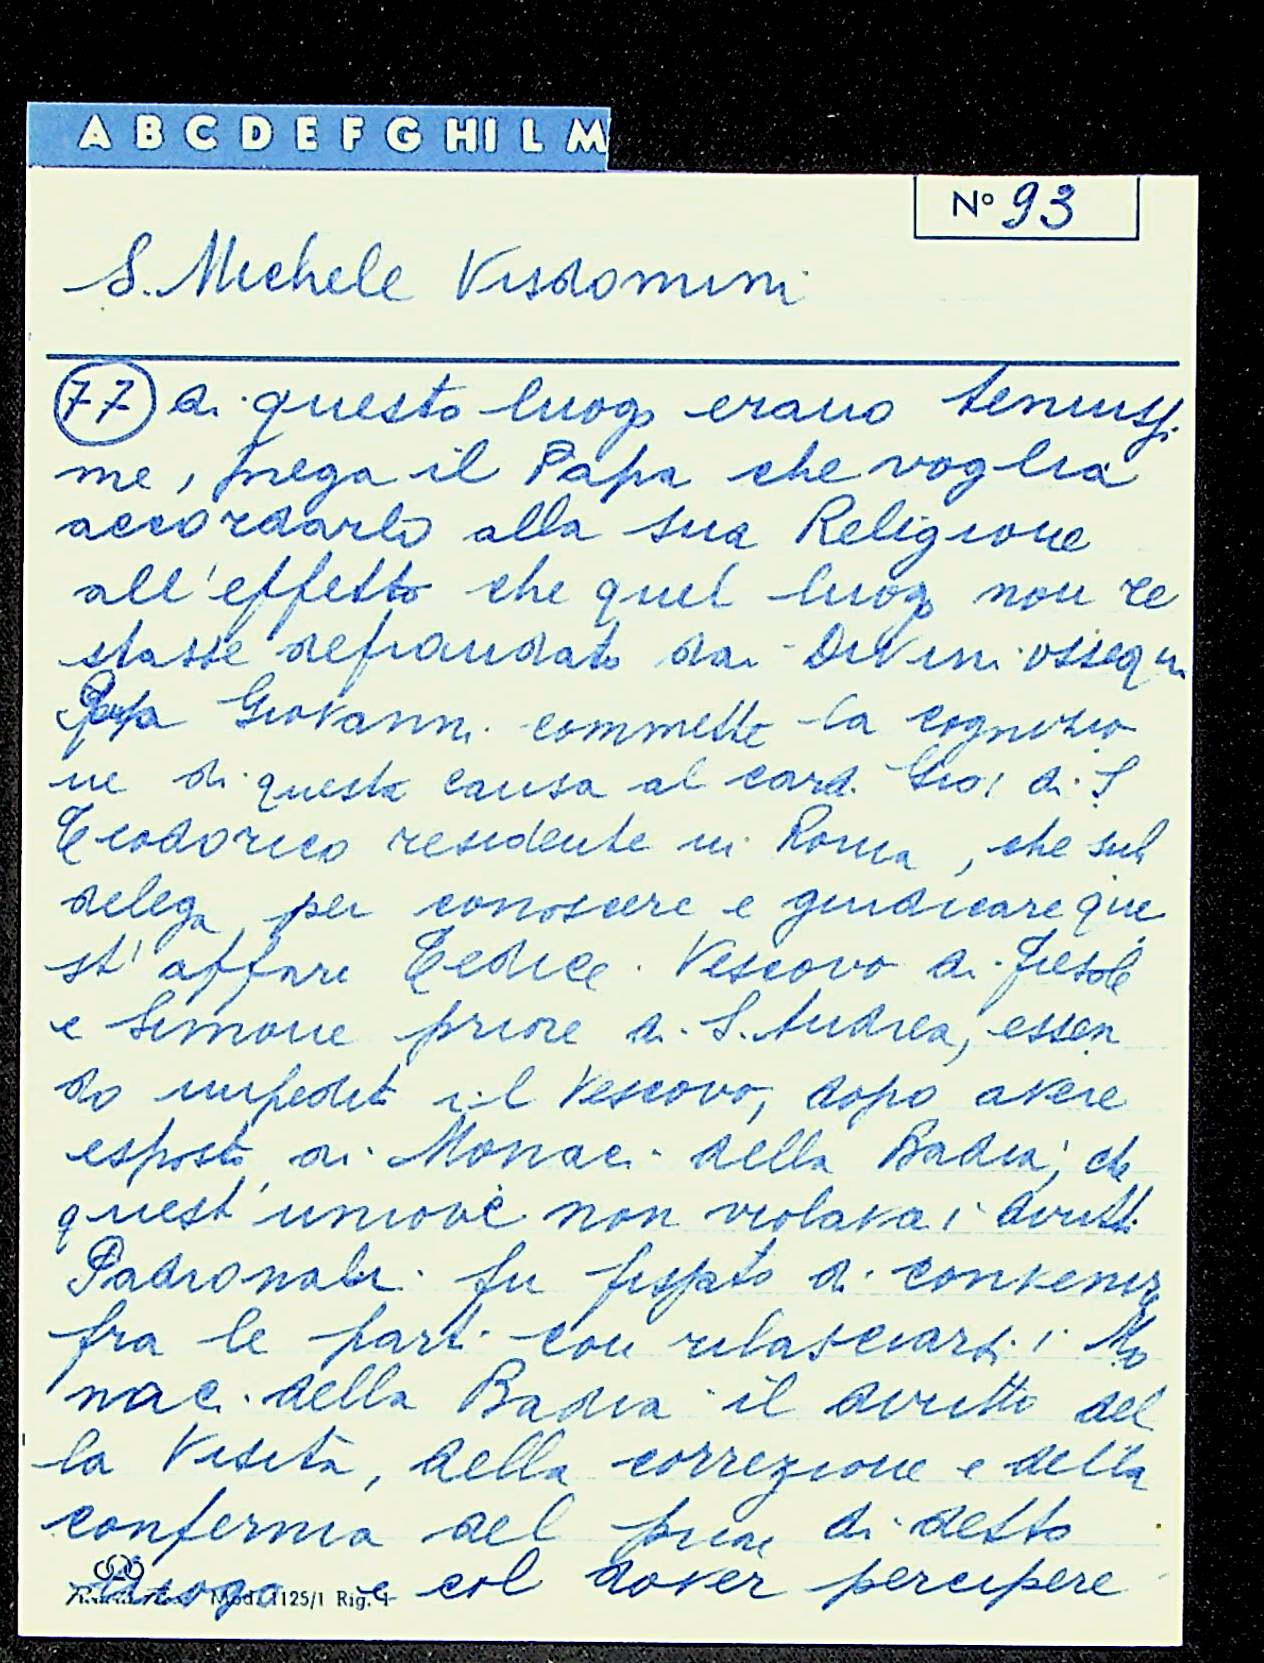 A B C D E F G HI L M
Nº 93
S. Michele Visdomini
77 di questo luogo erano tenuissi
me, prega il Papa che voglia
accordarlo alla sua Religione
all'effetto che quel luogo non re
stasse defraudato dai Divini ossequi
Papa Giovanni commette la cognizio
ne di questa causa al card. Gio: di S
Teodorico residente in Roma, che sub
delega per conoscere e giudicare que
st'affare Tedice Vescovo di Fiesole
e Simone priore di S. Andrea, essen
do impedito il Vescovo, dopo avere
esposto ai Monaci della Badia, che
quest'unione non violava i diritti
Padronali fu di convenire
fra le parti con rilasciarsi i Mo
naci della Badia il diritto del
la Visita, della correzione e della
conferma del priore di detto
luogo e col dover percipere
Mod. 1125/1 Rig. 4